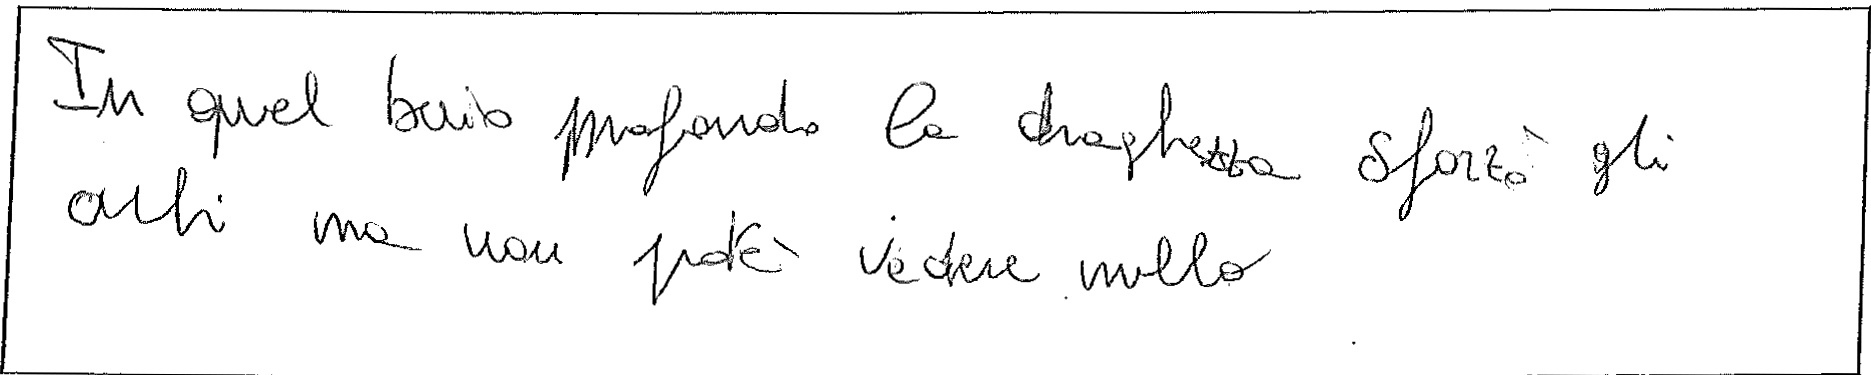 In quel buio profondo la draghetta sforzò gli
occhi ma non potè vedere nulla